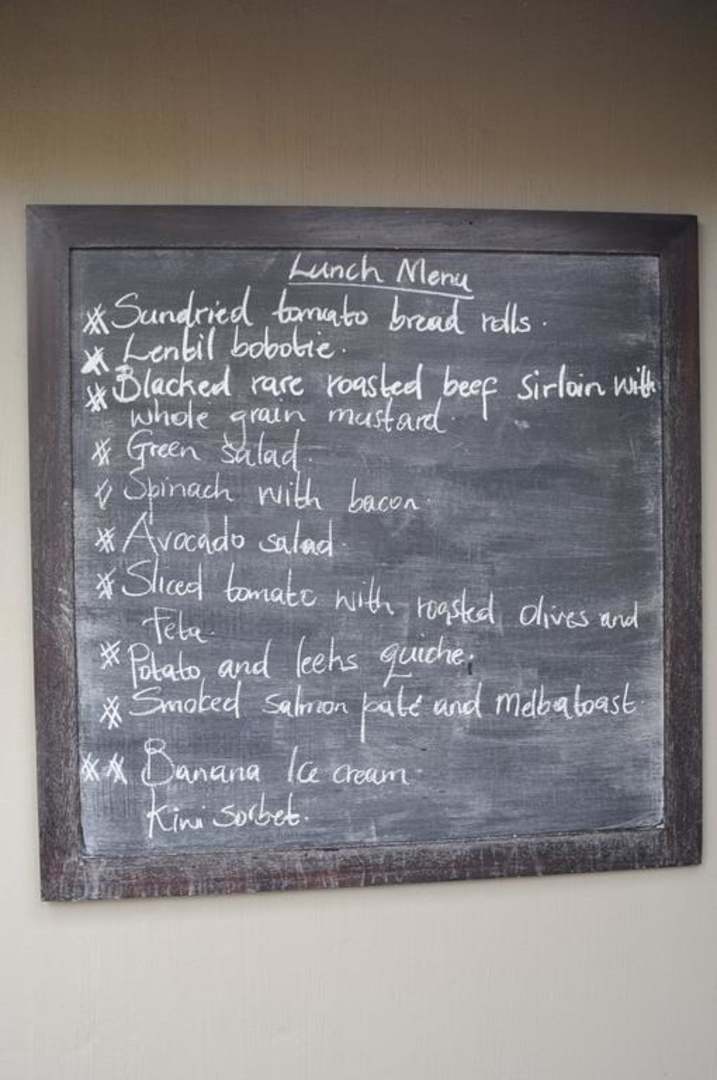 Lunch Menu
* Sundried tomato bread rolls.
* Lentil bobotie.
* Blacked rare roasted beef sirloin with
whole grain mustard.
* Green salad.
* Spinach with bacon.
* Avocado salad.
* Sliced tomato with roasted olives and
feta.
* Potato and leeks quiche.
* Smoked salmon paté and Melbatoast.
** Banana Ice cream.
Kiwi Sorbet.